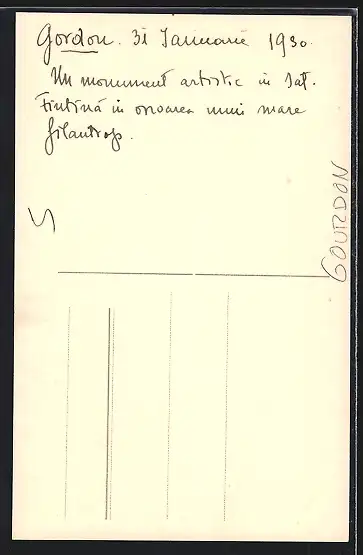 Gordon. 31 Ianuarie 1930.
Un monument artistic in sat.
Fintină in onoarea unui mare
filantrop.
GOURDON